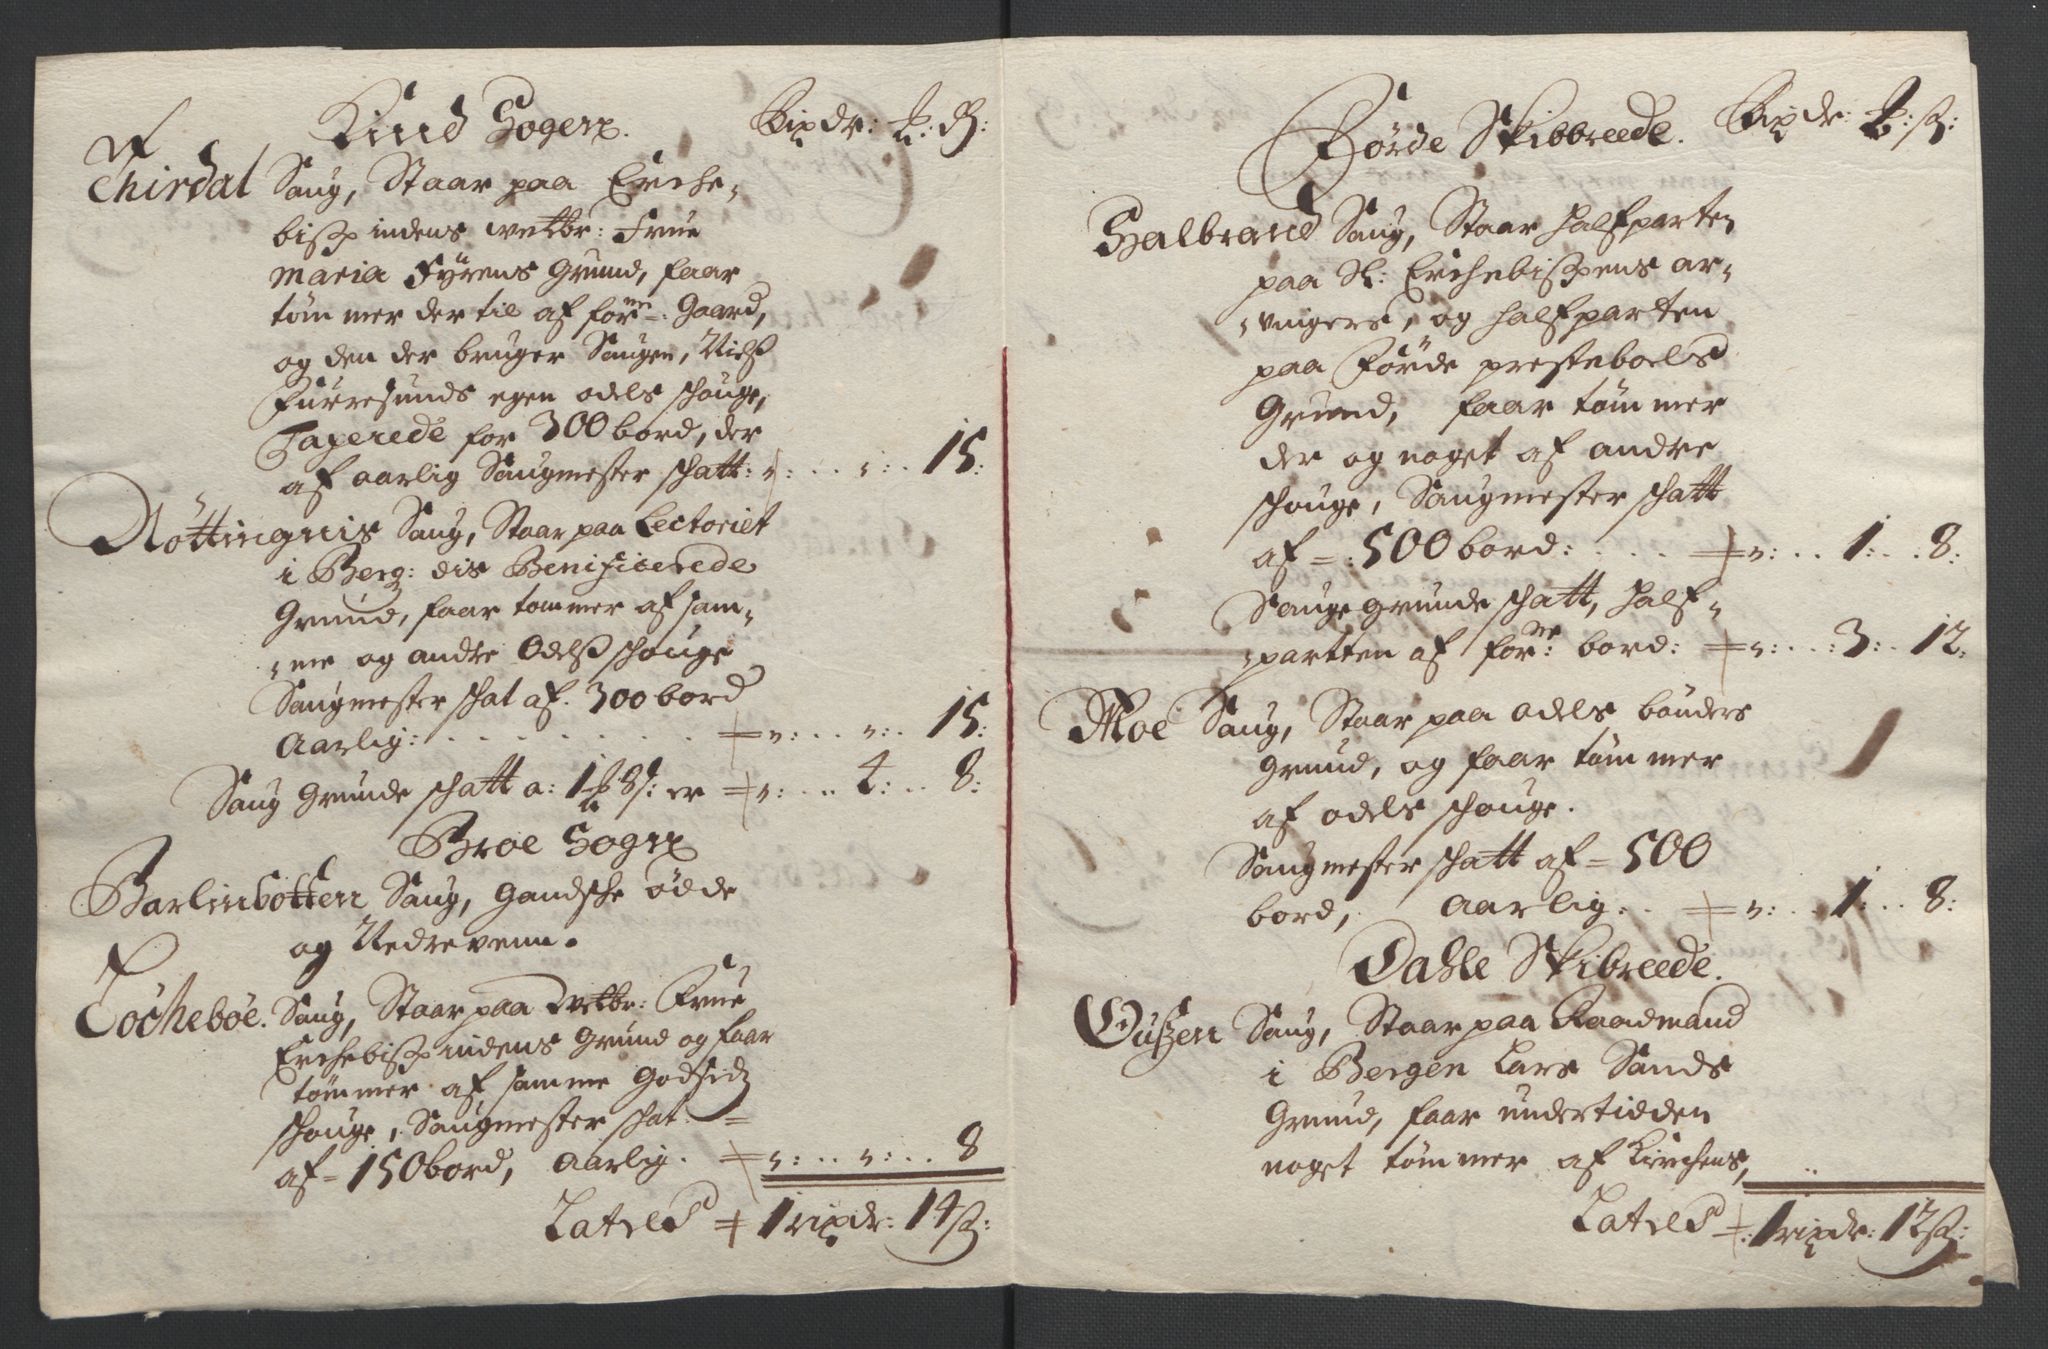 Kind Sogen. Rixdr: ß:
Saug, Staar paa Erche-
bispindens welbr: Frue
Maria Fyrens Grund, faar
tømmer der til af forne: Gaard,
og den der bruger Saugen, Niels
Furresunds egen odels schouge,
Taxerede for 300 bord, der
af aarlig Saugmester schatt: 15:
Nøttingnis Saug, Staar paa Lectoriet
i Berg: dis Benificerede
Grund, faar tømmer af sam-
me og andre Odelß schouge
Saugmester schat af. 300 bord
Aarlig: 15:
Saug Grunde schatt a: 1 8 ß: er 4: 8:
Broe Sogn
Barlinbotten Saug, Gandsche øde
og Nedrevenn.
Tochebøe. Saug, Staar paa welbr: Frue
Erchebispindens Grund og faar
tømmer af samme Godsidz
schouge, Saugmester schat
af 150 bord, Aarlig. 8
Lateris 1 rixdr: 14 ß:
Førde Skibbreede. Rixdr: ß:
Halbrand Saug, Staar halfparten
paa Sl: Erchebispens ar-
vingers, og halfparten
paa Førde presteboels
Grund, faar tømmer
der og noget af andre
schouge, Saugmester schatt
af 500 bord: 1: 8:
Saugegrunde schatt, half-
partten af forne: bord: 3: 12:
Moe Saug, Staar paa odels bønders
Grund, og faar tømmer
af odels schouge.
Saugmester schatt af 500
bord, Aarlig: 1: 8:
Dahle Skibreede.
Saug, Staar paa Raadmand
i Bergen Lars Sands
Grund, faar undertidden
noget tømmer af Kirchens,
Lateris 1 rixdr: 12 ß: